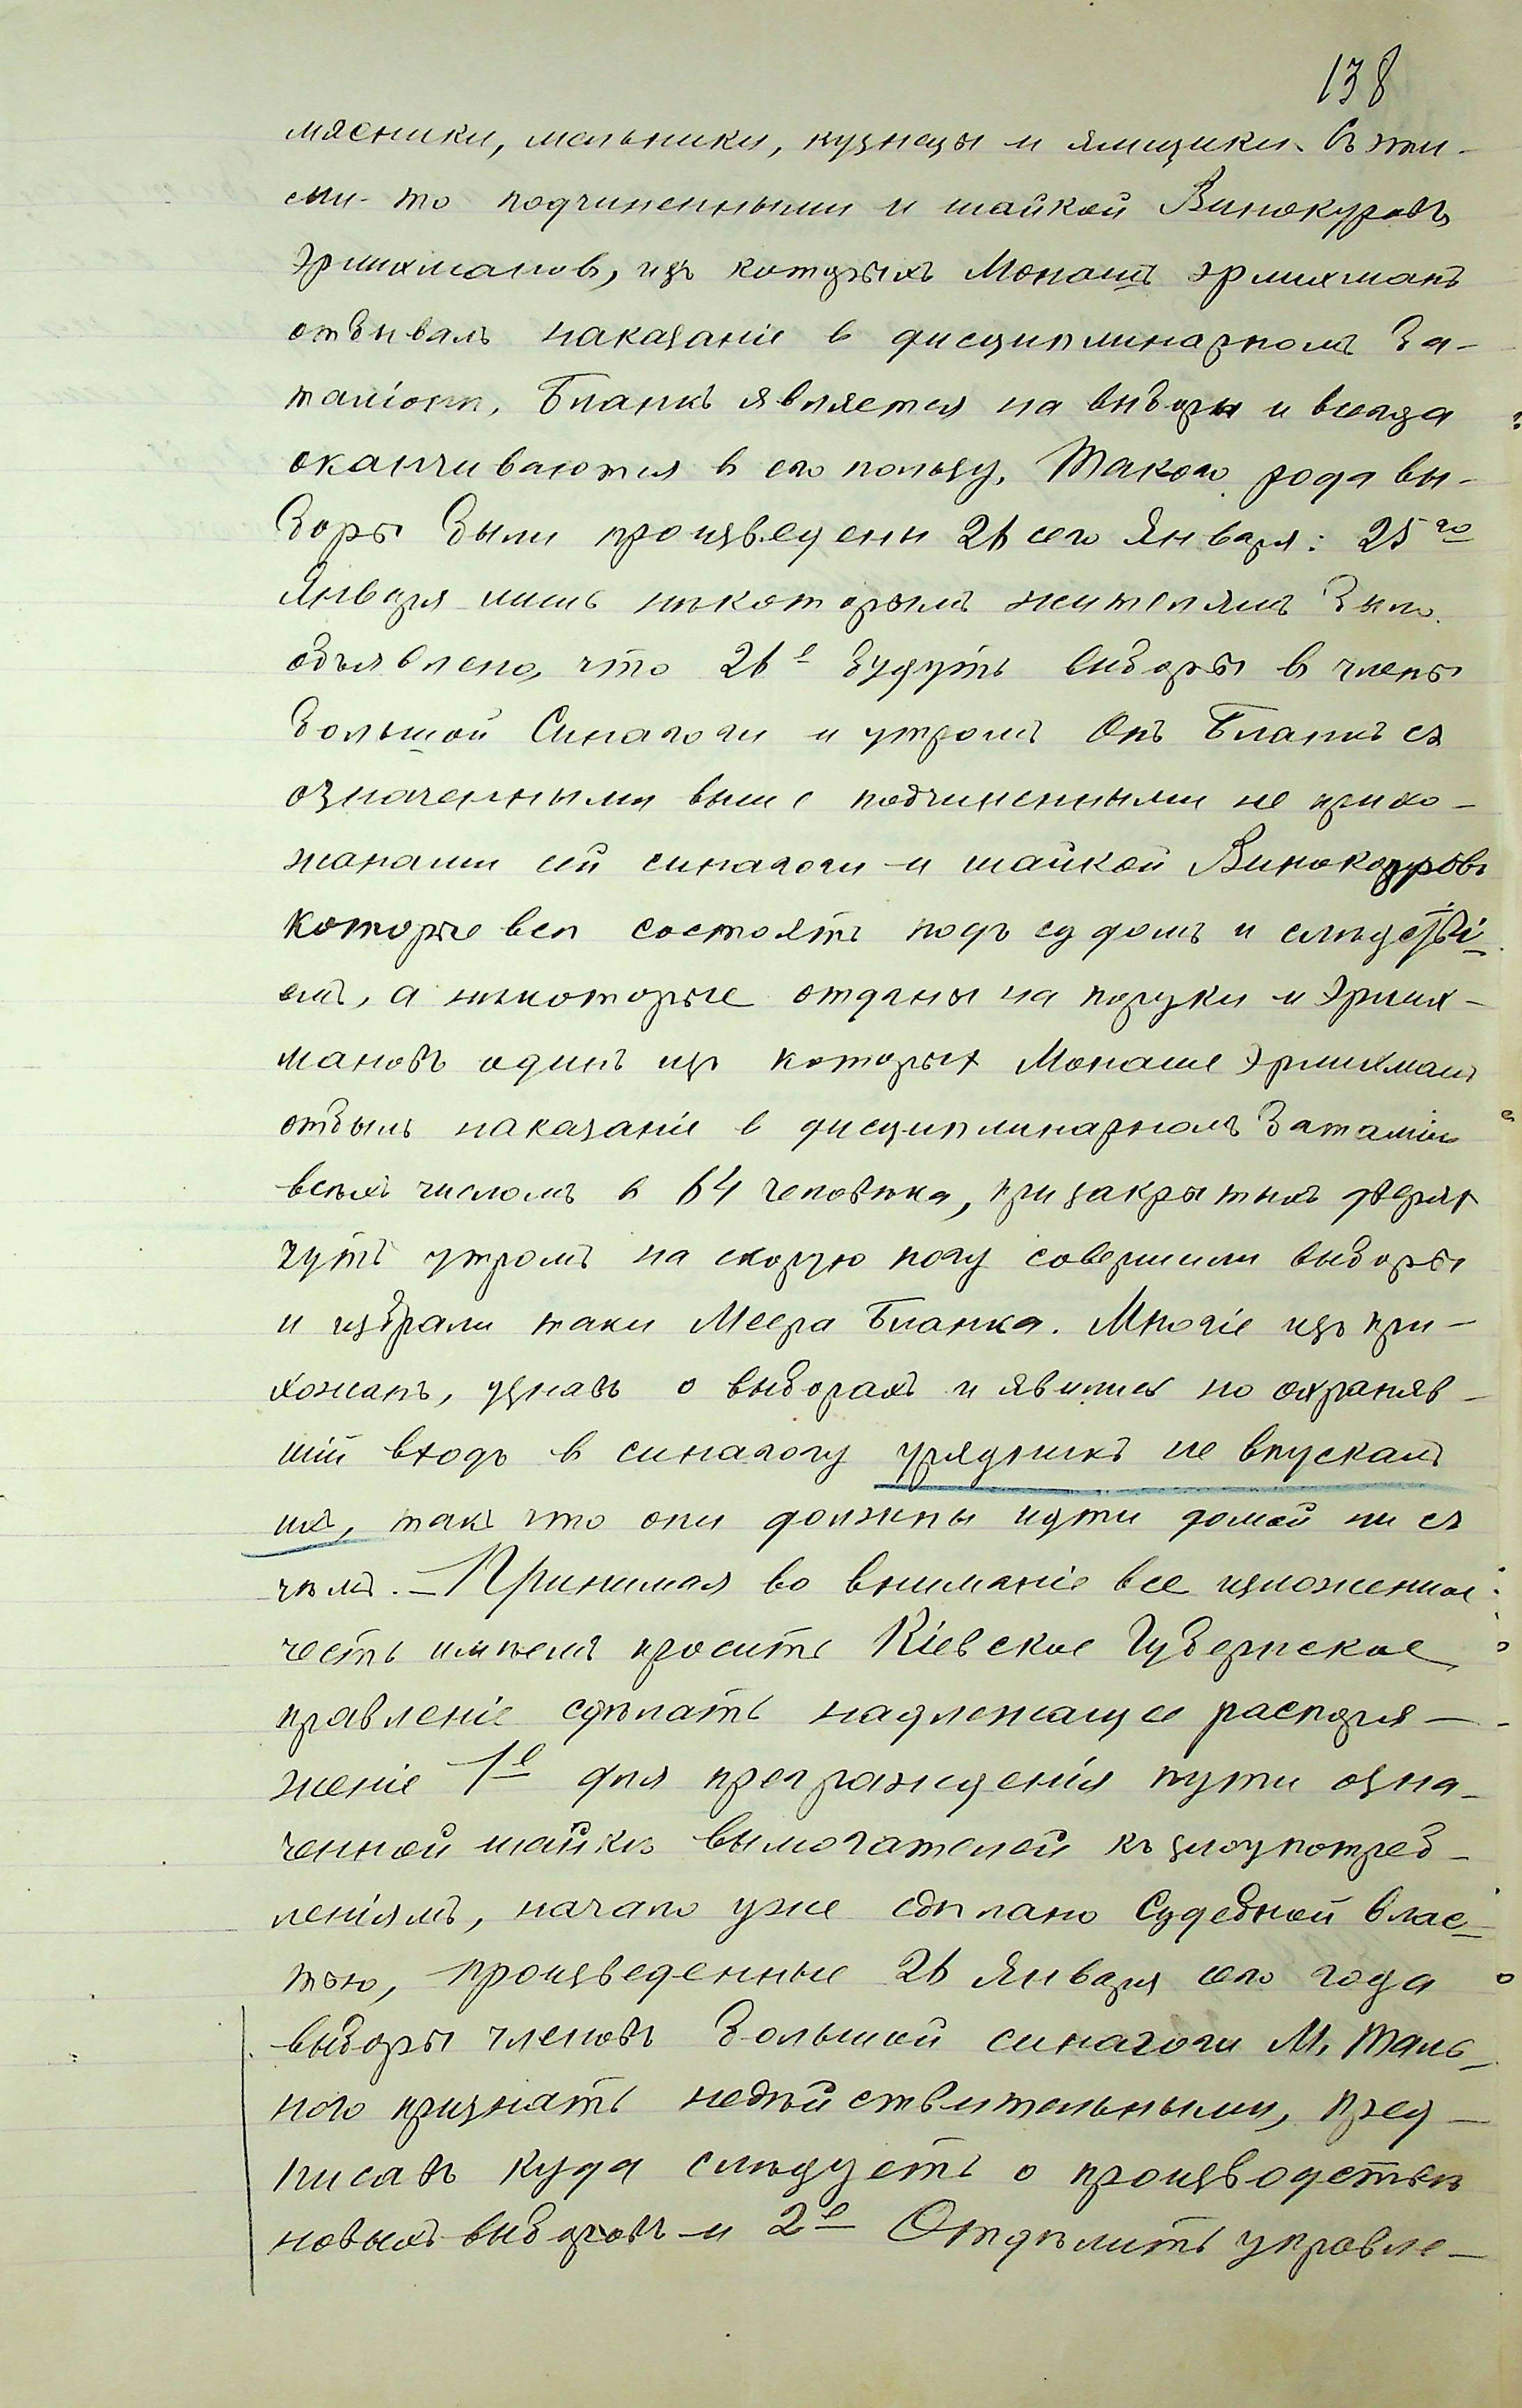 138
мясники, мельники, кузнецы и ямщики. Съ эти-
ми-то подчиненными и шайкой Винокуровъ
Эрлихмановъ, изъ которыхъ Монашъ Эрлихманъ
отбывалъ наказаніе в дисциплинарномъ ба-
таліонѣ, Бланкъ является на выборы и всегда
оканчиваются в его пользу. Такого рода вы-
боры были произведены 26 сего Января: 25го
Января лишь нѣкоторымъ жителямъ было
объявлено, что 26е будутъ выборы в члены
большой Синагоги и утромъ Онъ Бланкъ съ
означенными выше подчиненными не прихо-
жанами сей синагоги и шайкой Винокуровъ
которые всѣ состоятъ подъ судомъ и слѣдстві-
емъ, а нѣкоторые отданы на поруки и Эрлих-
мановъ одинъ изъ которых Монаше Эрлихманъ
отбылъ наказаніе в дисциплинарномъ батальон
всѣхъ числомъ в 64 человѣка, при закрытыхъ дверях
чуть утромъ на скорую ногу совершили выборы
и избрали таки Меера Бланка. Многіе изъ при-
хожанъ, узнавъ о выборахъ и явились но охраняв-
шій входъ в синагогу урядникъ не впускалъ
ихъ, такъ что они должны идти домой ни съ
чѣмъ. – Принимая во вниманіе все изложенное
честь имѣемъ просить Кіевское Губернское
правленіе сдѣлать надлежащее распоря-
женіе 1е для прегражденія пути озна-
ченной шайкѣ вымогателей къ злоупотреб-
леніямъ, начало уже сдѣлано Судебной влас-
тью, произведенные 26 Января сего года
выборы членовъ большой синагоги М. Таль-
ного признать недѣйствительными, пред-
писавъ куда слѣдуетъ о производствѣ
новыхъ выборовъ и 2е Отдѣлить управле-